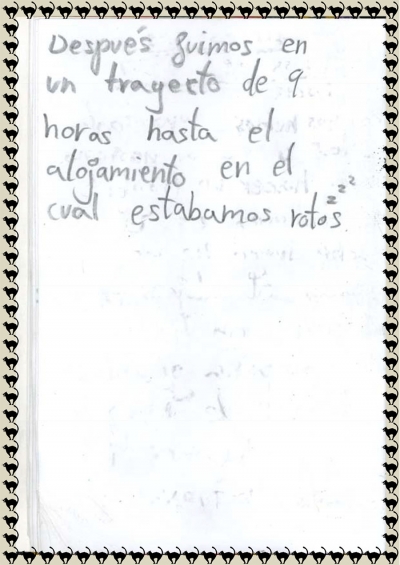 Después fuimos en
un trayecto de 9
horas hasta el
alojamiento en el
cual estabamos rotos zzz